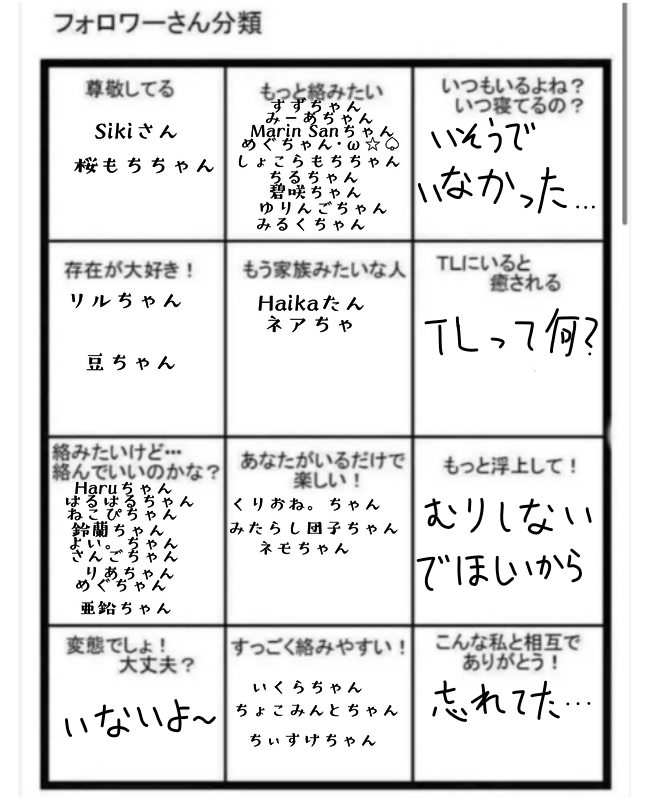 フォロワーさん分類
尊敬してる
Sikiさん
桜もちちゃん
もっと絡みたい
すずちゃん
みーあちゃん
Marin Sanちゃん
めぐちゃん･ω☆♤
しょこらもちちゃん
ちるちゃん
碧咲ちゃん
ゆりんごちゃん
みるくちゃん
いつもいるよね？
いつ寝てるの？
いそうで
いなかった…
存在が大好き！
リルちゃん
豆ちゃん
もう家族みたいな人
Haikaたん
ネアちゃ
TLにいると
癒される
TLって何?
絡みたいけど…
絡んでいいのかな？
Haruちゃん
はるはるちゃん
ねこぴちゃん
鈴蘭ちゃん
よい。ちゃん
さんごちゃん
りあちゃん
めぐちゃん
亜鉛ちゃん
あなたがいるだけで
楽しい！
くりおね。ちゃん
みたらし団子ちゃん
ネモちゃん
もっと浮上して！
むりしない
でほしいから
変態でしょ！
大丈夫？
いないよ～
すっごく絡みやすい！
いくらちゃん
ちょこみんとちゃん
ちぃすけちゃん
こんな私と相互で
ありがとう！
忘れてた…